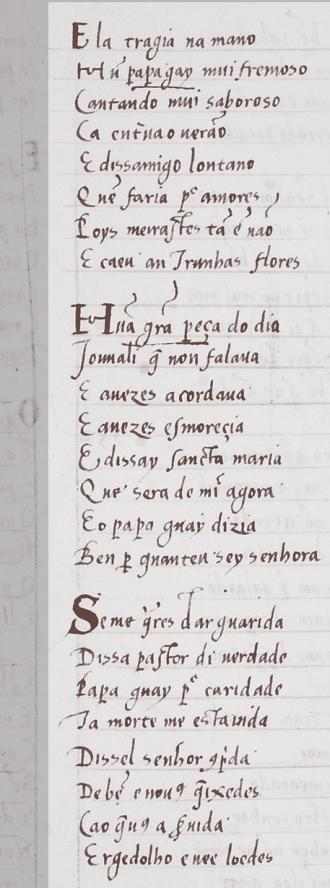 Ela tragia na mano
Hũ papagay mui fremoso
Cantando mui saboroso
Ca entũao uerão
E dissamigo lontano
Que faria pᵉ amores
Poys meirastes tã ẽ não
E caeu an Trunhas flores
Hũa grã peça do dia
Jouuali q̃ non falaua
E auezes acordaua
E auezes esmorecia
E dissay sancta maria
Que sera de mĩ agora
E o papa guay dizia
Ben ꝑ quanteu sey senhora
Seme q̃res dar guarida
Dissa pastor di uerdade
Papa guay pᵉ caridade
Ca morte me estauida
Dissel senhor ꝯp̃da
De bẽ e nouꝯ q̃ixedes
Cao q̃uꝯ a ẜuida
Ergedolho e uee loedes